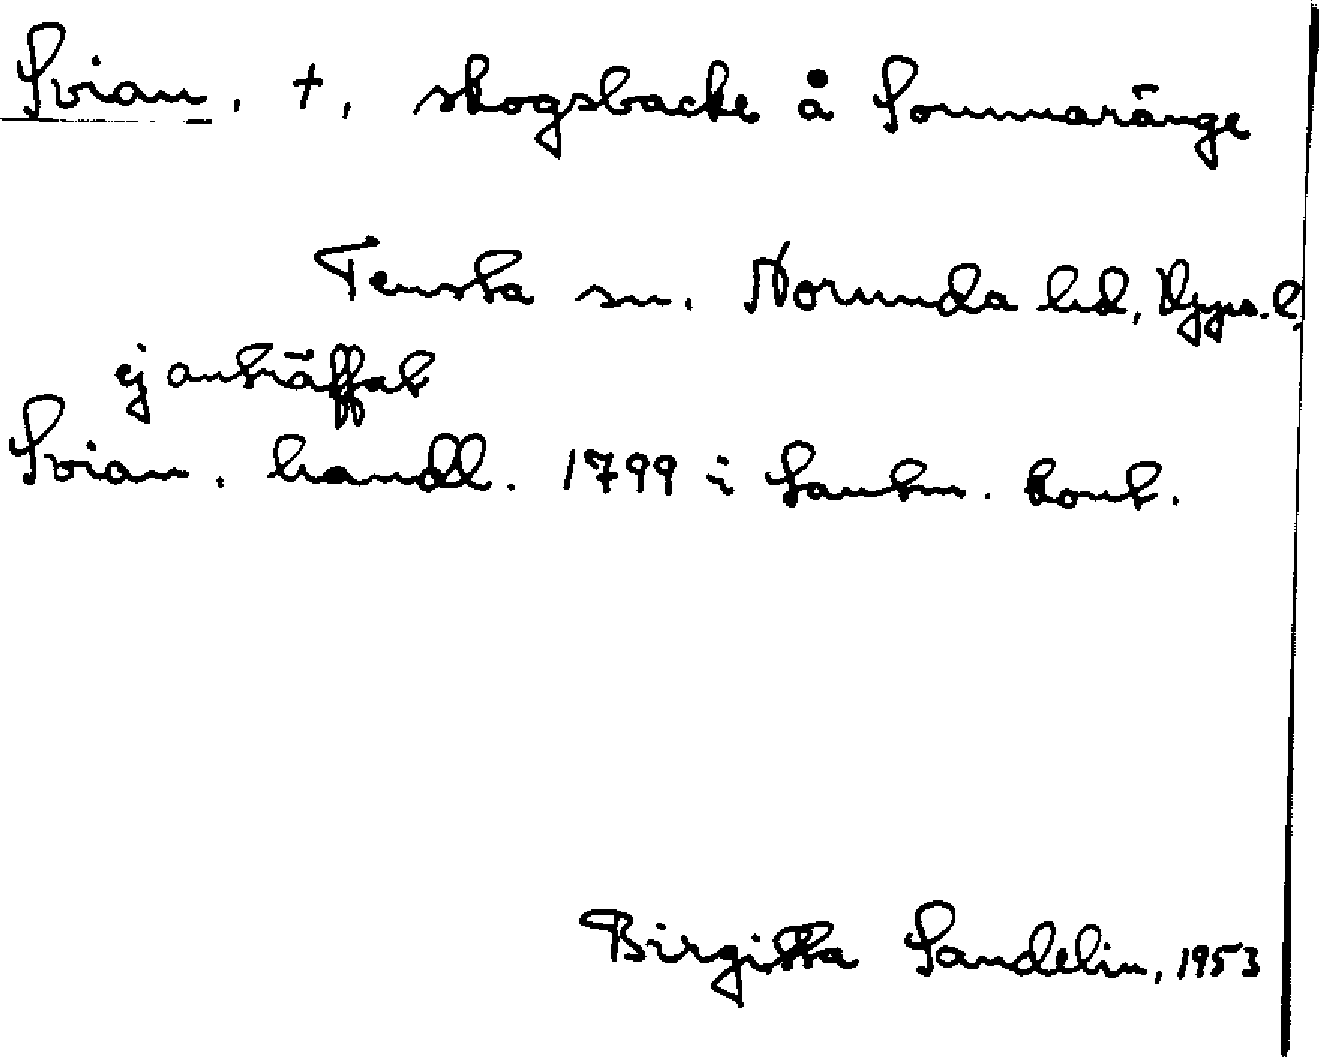 Svian. +, skogsbacke å Sommaränge
Tensta sn. Norunda hd, Upps. l.
ej anträffat
Svian. handl. 1799 i Lantm. kont.
Birgitta Sandelin, 1953